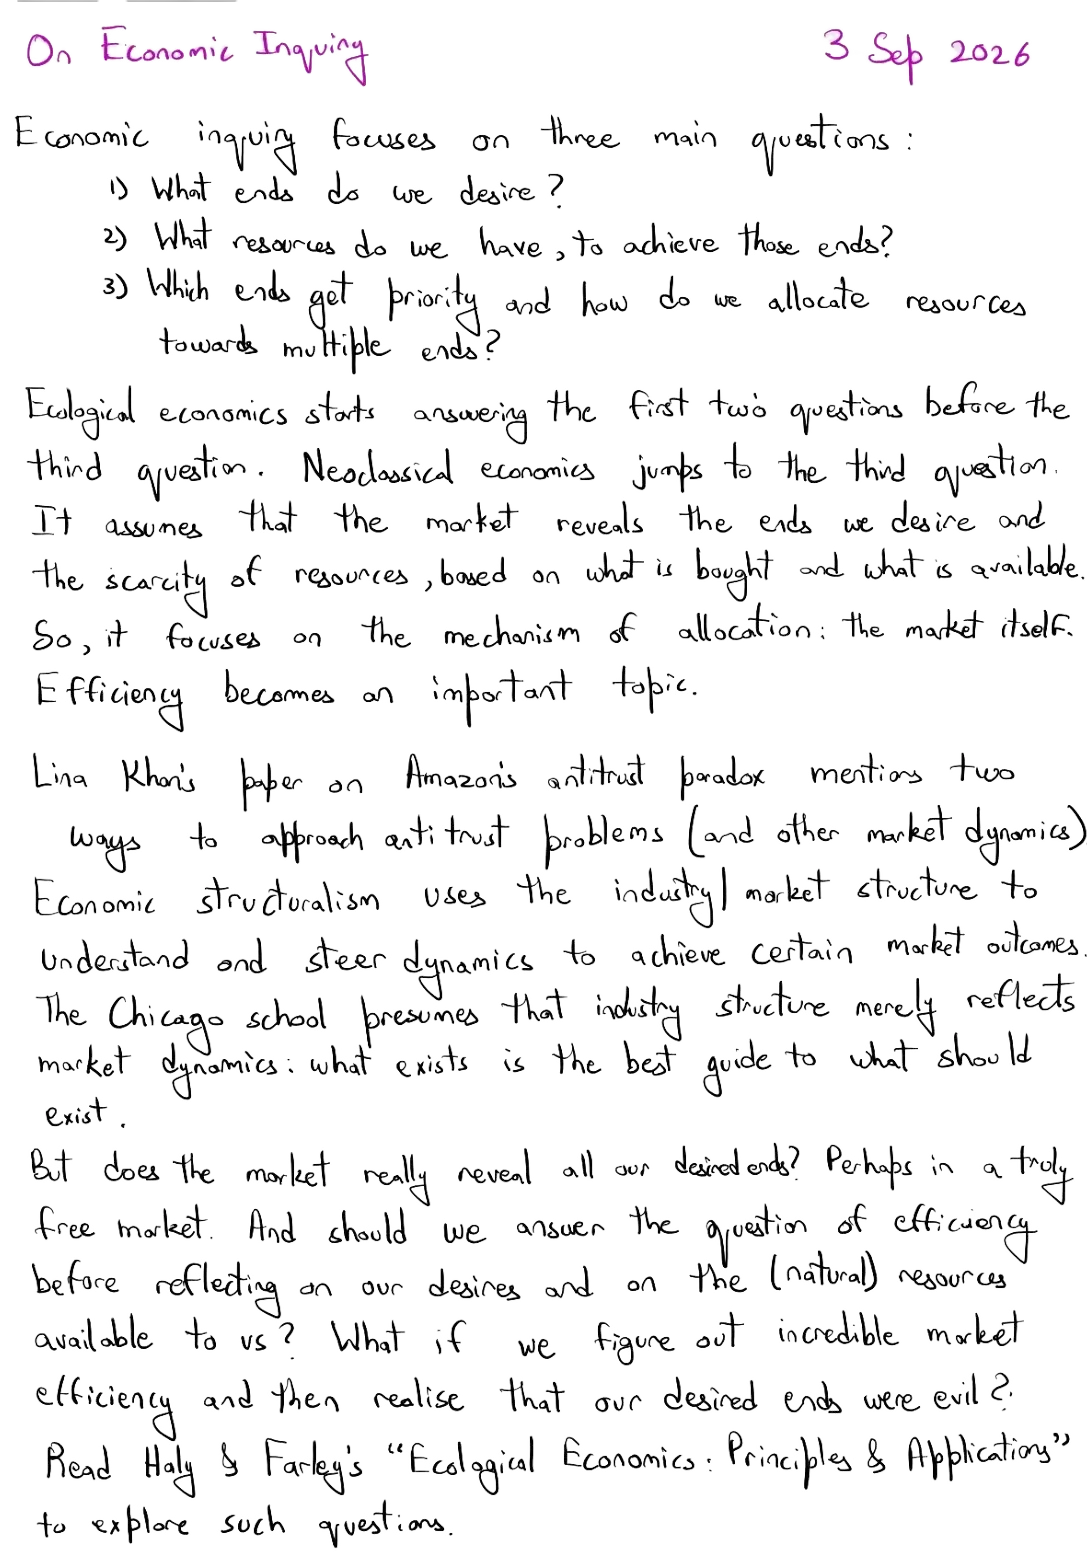 On Economic Inquiry 3 Sep 2026
Economic inquiry focuses on three main questions:
1) What ends do we desire?
2) What resources do we have, to achieve those ends?
3) Which ends get priority and how do we allocate resources
towards multiple ends?
Ecological economics starts answering the first two questions before the
third question. Neoclassical economics jumps to the third question.
It assumes that the market reveals the ends we desire and
the scarcity of resources, based on what is bought and what is available.
So, it focuses on the mechanism of allocation: the market itself.
Efficiency becomes an important topic.
Lina Khan's paper on Amazon's antitrust paradox mentions two
ways to approach antitrust problems (and other market dynamics)
Economic structuralism uses the industry/market structure to
understand and steer dynamics to achieve certain market outcomes.
The Chicago school presumes that industry structure merely reflects
market dynamics: what exists is the best guide to what should
exist.
But does the market really reveal all our desired ends? Perhaps in a truly
free market. And should we answer the question of efficiency
before reflecting on our desires and on the (natural) resources
available to us? What if we figure out incredible market
efficiency and then realise that our desired ends were evil?
Read Haly & Farley's "Ecological Economics: Principles & Applications"
to explore such questions.